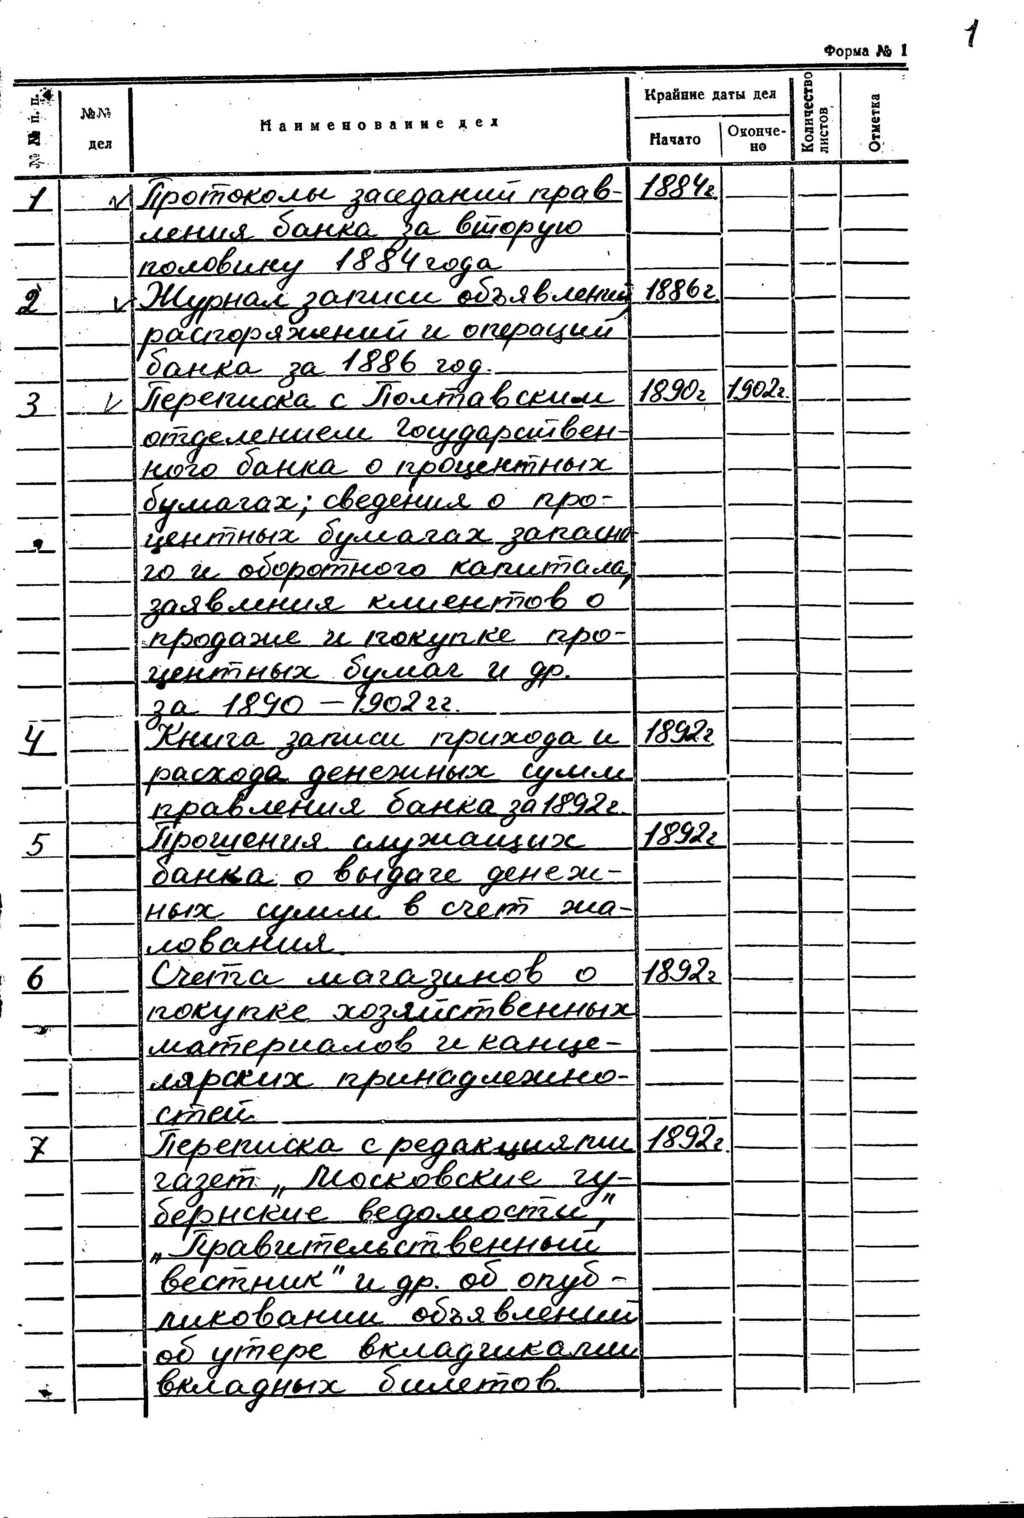 1
Форма № 1
№№ п. п.
№№ дел
Наименование дел
Крайние даты дел
Начато
Окончено
Количество листов
Отметка
1 v Протоколы заседаний прав- 1884г.
ления банка за вторую
половину 1884 года
2 v Журнал записи объявлений, 1886г.
распоряжений и операций
банка за 1886 год.
3 v Переписка с Полтавским 1890г. 1902г.
отделением Государствен-
ного банка о процентных
бумагах; сведения о про-
центных бумагах запасно-
го и оборотного капитала,
заявления клиентов о
продаже и покупке про-
центных бумаг и др.
за 1890 – 1902 гг.
4 Книга записи прихода и 1892г.
расхода денежных сумм
правления банка за 1892г.
5 Прошения служащих 1892г.
банка о выдаче денеж-
ных сумм в счет жа-
лования
6 Счета магазинов о 1892г.
покупке хозяйственных
материалов и канце-
лярских принадлежно-
стей
7 Переписка с редакциями 1892г.
газет „Московские гу-
бернские ведомости",
„Правительственный
вестник" и др. об опуб-
ликовании объявлений
об утере вкладчиками
вкладных билетов.